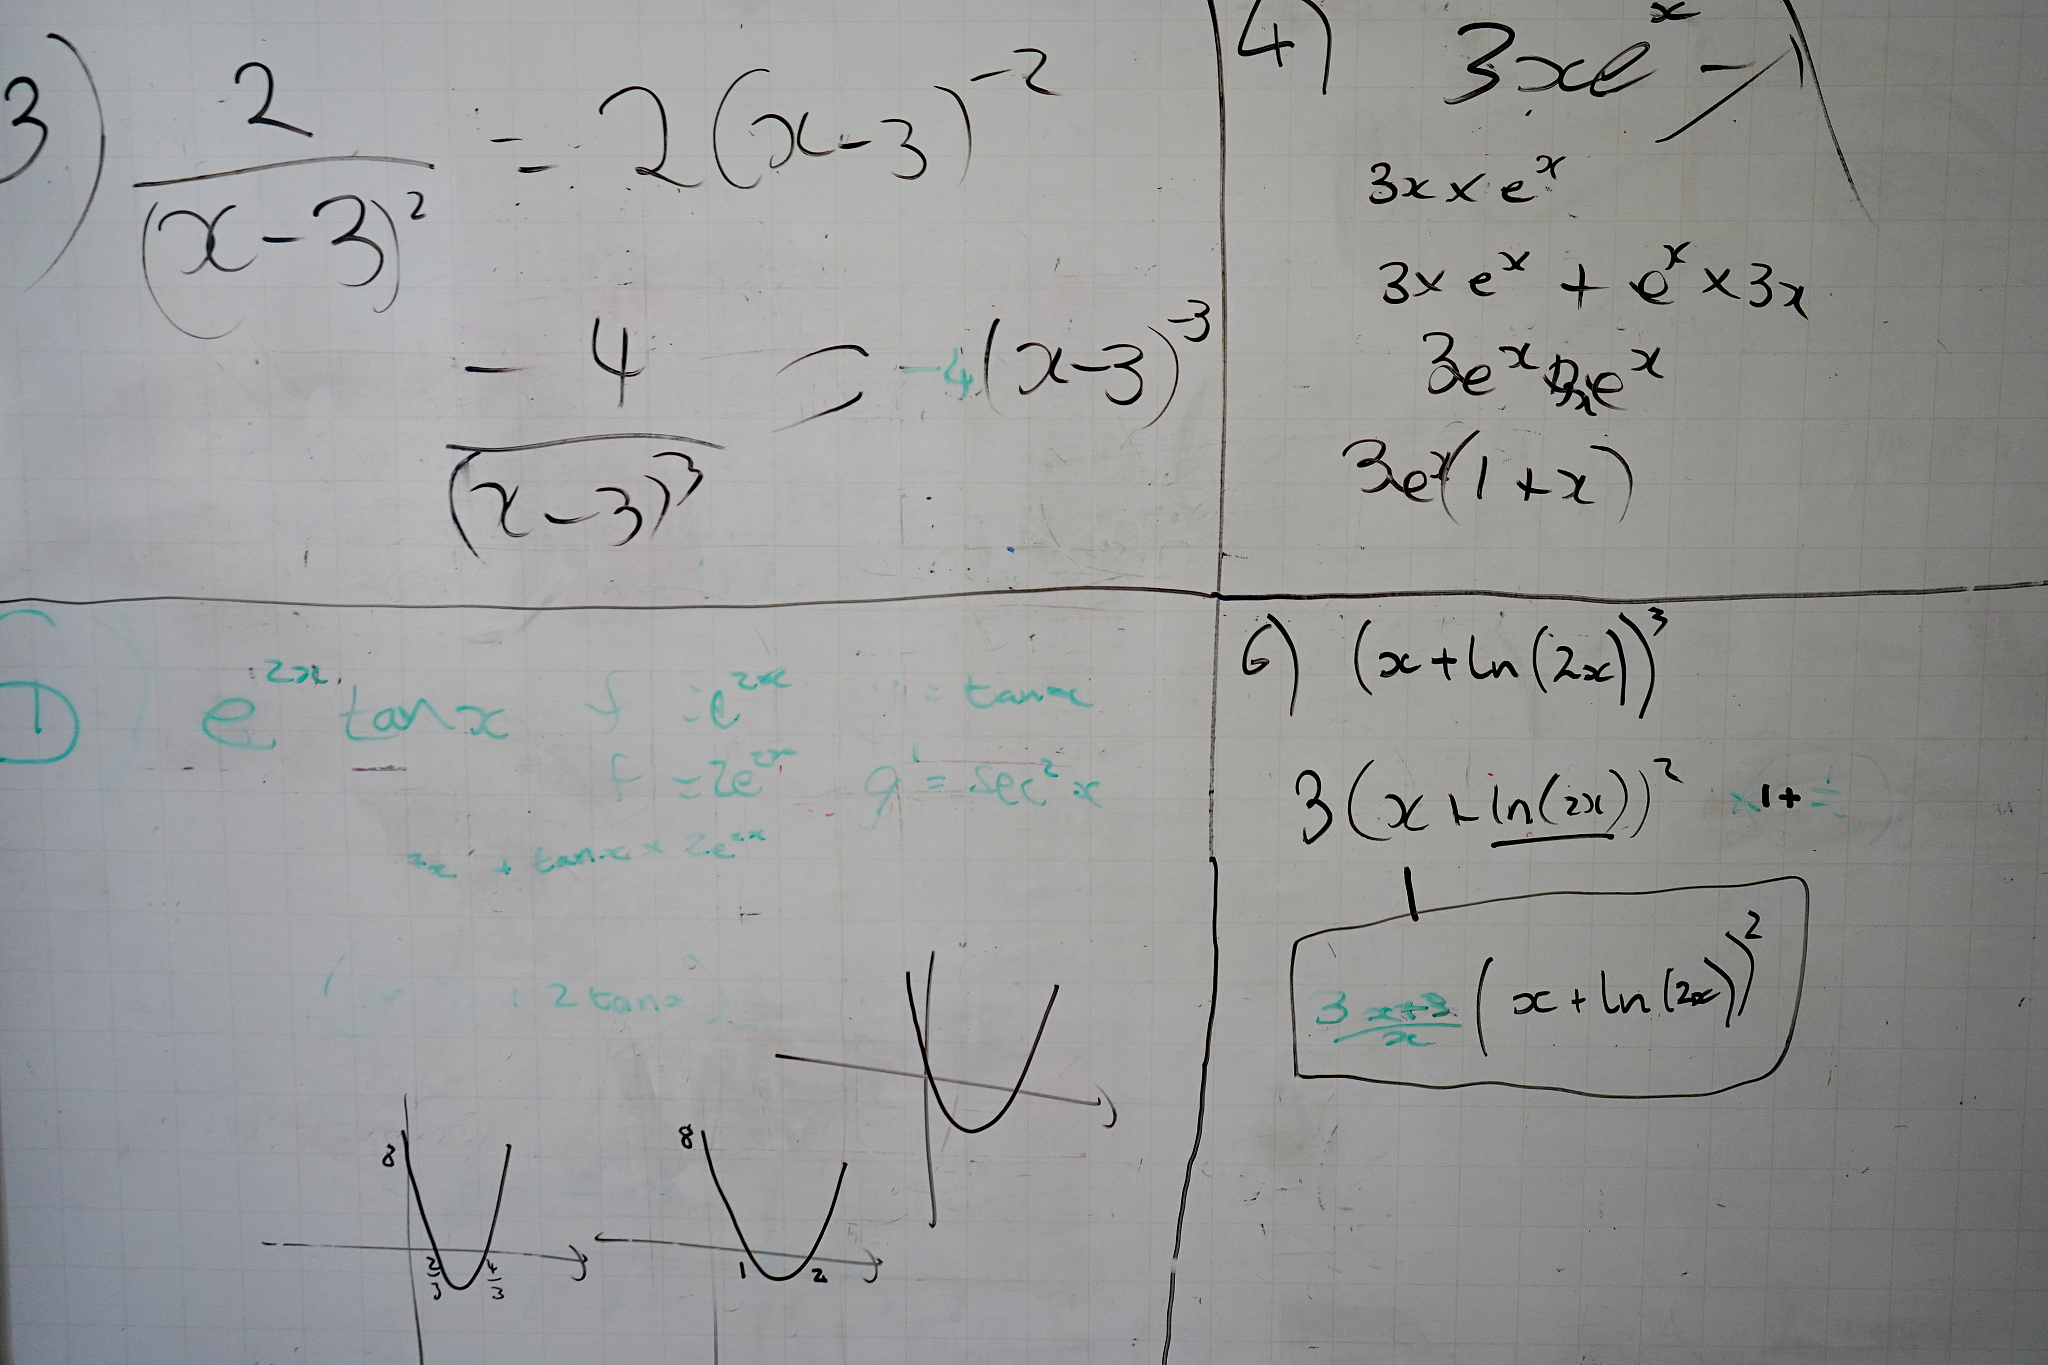 3) 2/(x-3)² = 2(x-3)⁻²
-4/(x-3)³ = -4(x-3)⁻³
4) 3xeˣ - 1
3x × eˣ
3 × eˣ + eˣ × 3x
3eˣ 3xeˣ
3eˣ(1+x)
e²ˣ tanx f = e²ˣ = tanx
f = 2e²ˣ g' = sec²x
+ tanx × 2e²ˣ
2 tanx
8
2/3 4/3
8
1 2
6) (x+ln(2x))³
3(x+ln(2x))² × 1+
1
3x+3/x (x+ln(2x))²